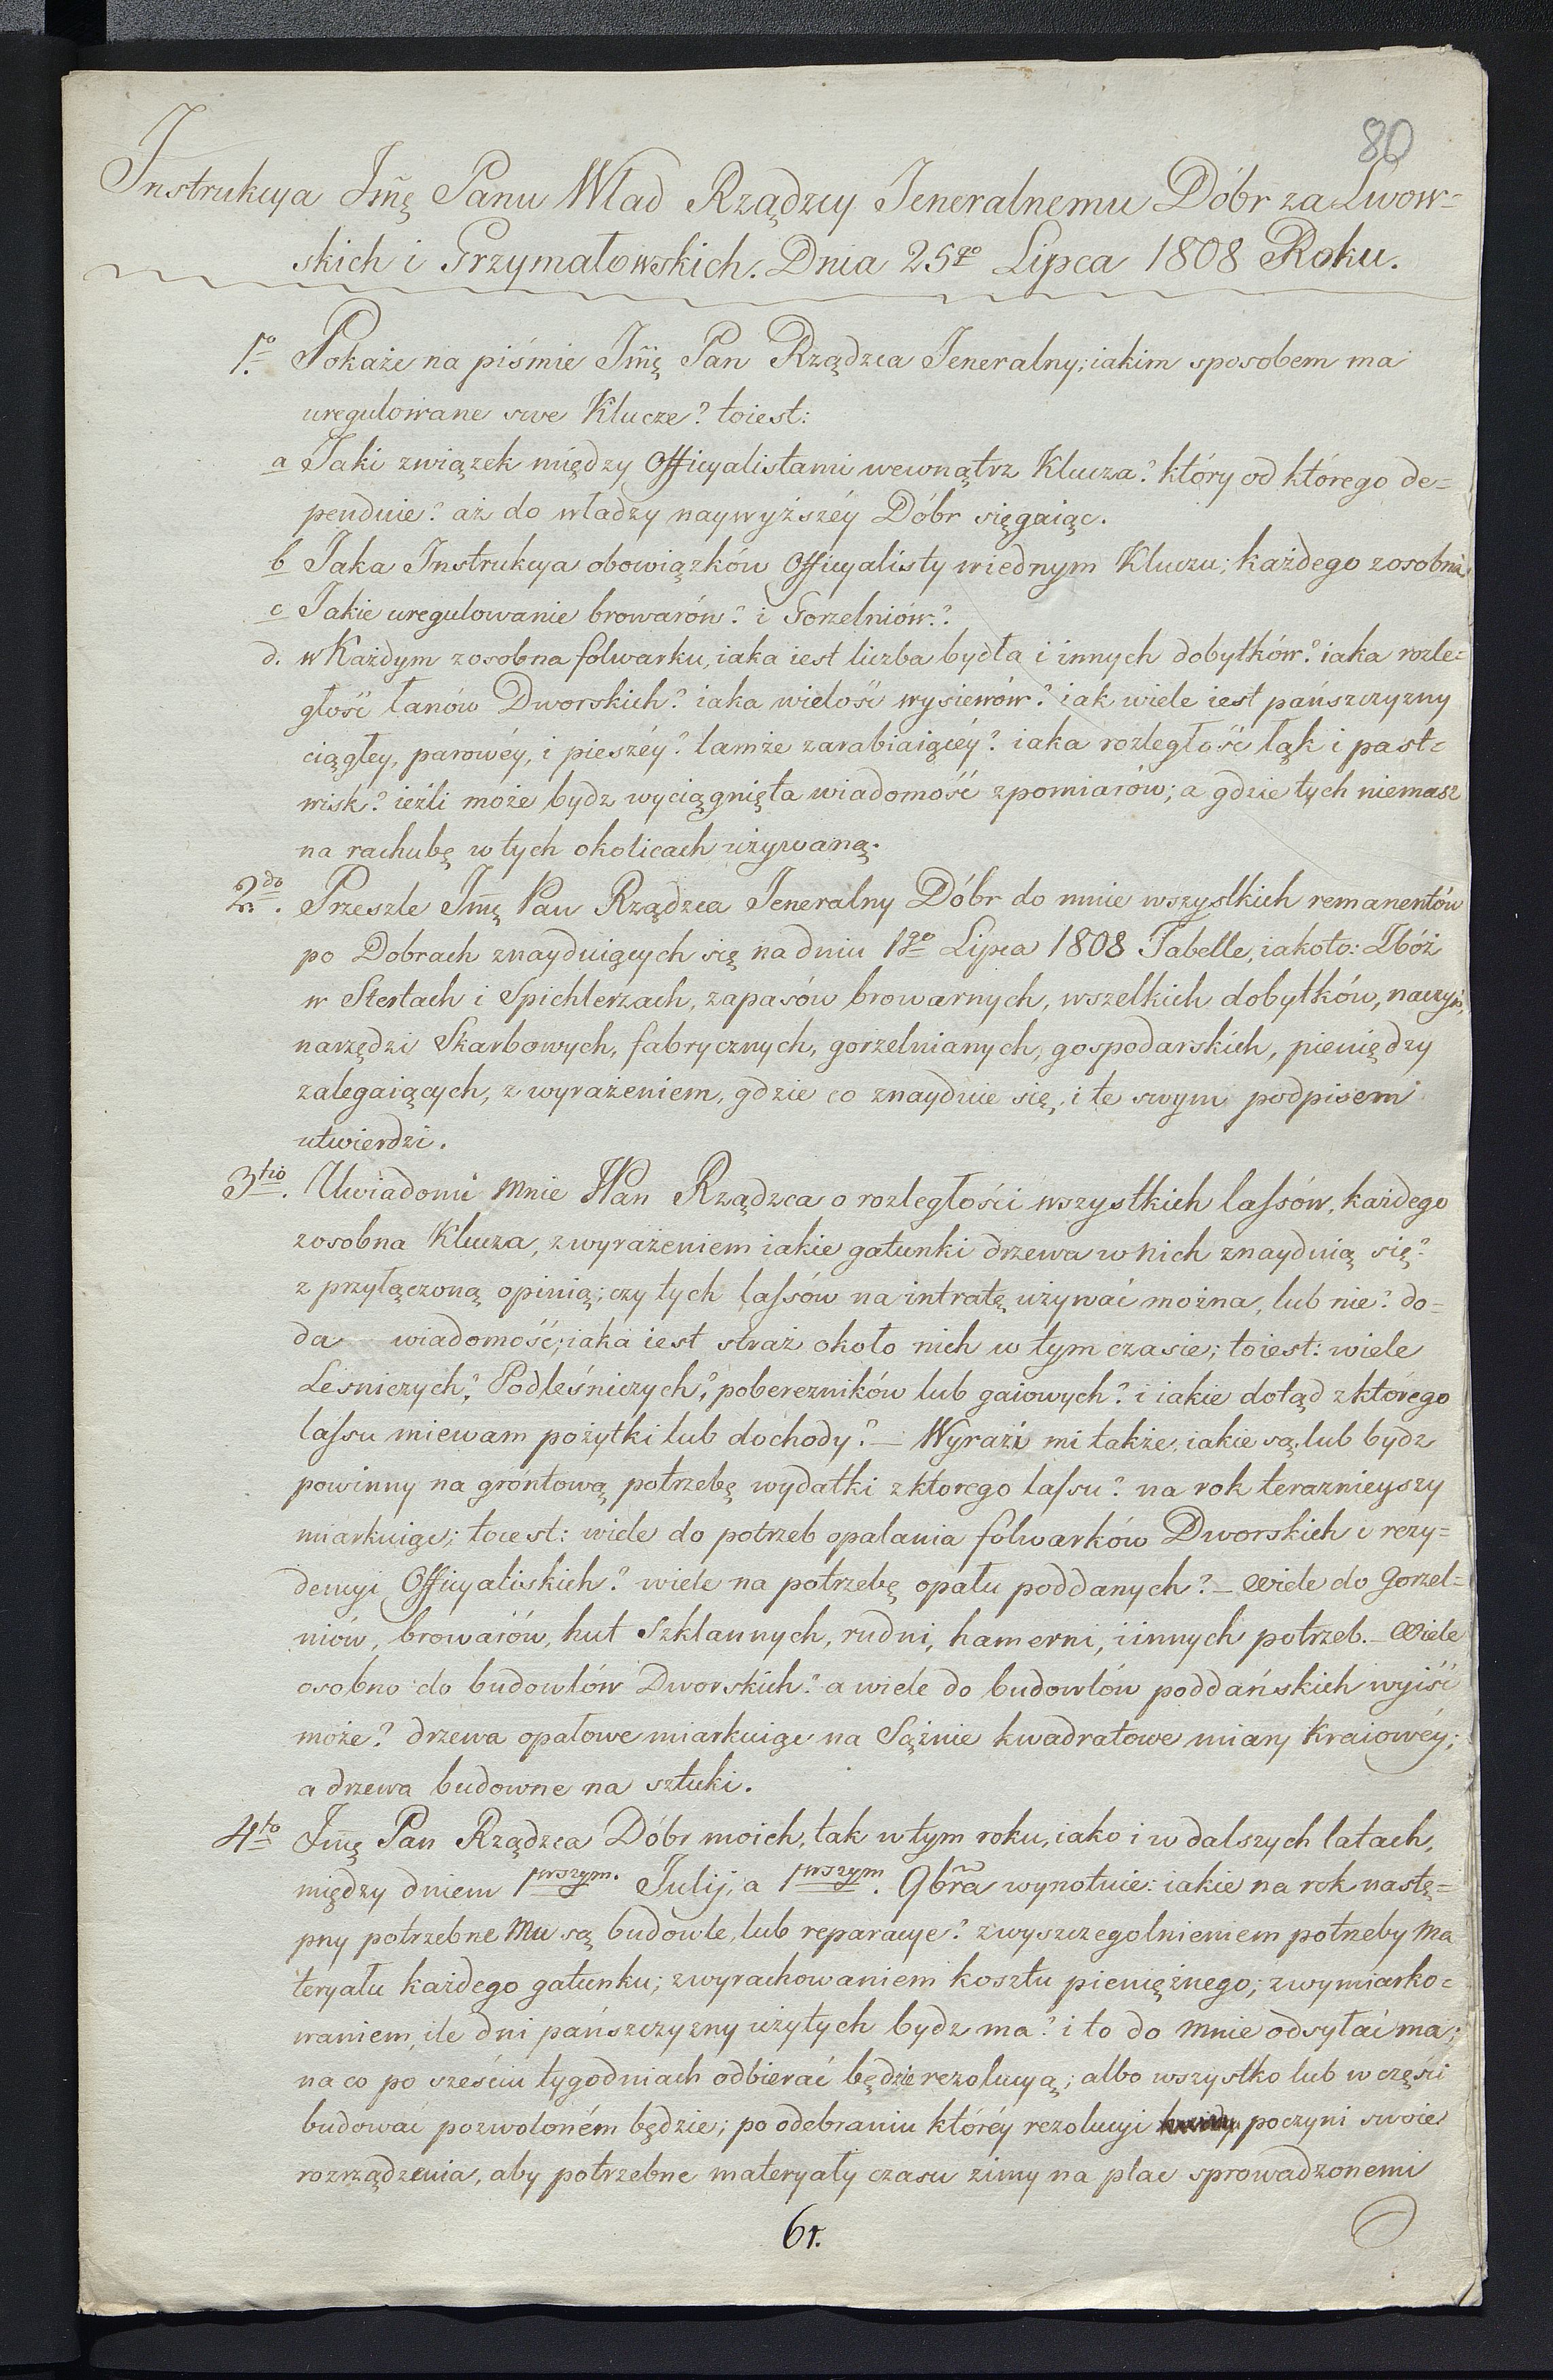 80
Instrukcya Jmę Panu Wlad Rządzcy Jeneralnemu Dóbr za Lwow=
skich i Grzymałowskich. Dnia 25go Lipca 1808 Roku.
1o. Pokaże na piśmie Jmę Pan Rządzca Jeneralny; iakim sposobem ma
uregulowane swe Klucze? toiest:
a Jaki związek między Officyalistami wewnątrz Klucza? który od którego de=
penduie? aż do władzy naywyższéy Dóbr sięgaiąc.
b Jaka Instrukcya obowiązków Officyalisty w iednym Kluczu; każdego zosobna
c Jakie uregulowanie browarów? i Gorzelniów?
d. w Każdym zosobna folwarku, iaka iest liczba bydła i innych dobytków? iaka rozle=
głość łanów Dworskich? iaka wielość wysiewów? iak wiele iest pańszczyzny
ciągłey, parowéy, i pieszéy? tamże zarabiaiącéy? iaka rozległość łąk i past=
wisk? ieźli może bydz wyciągnięta wiadomość z pomiarów; a gdzie tych niemasz
na rachubę w tych okolicach używaną.
2do. Przeszle Jmę Pan Rządzca Jeneralny Dóbr do mnie wszystkich remanentów
po Dobrach znayduiących się na dniu 1go Lipca 1808 Tabelle, iakoto: Zbóż
w Stertach i Spichlerzach, zapasów browarnych, wszelkich dobytków, naczyń,
narzędzi Skarbowych, fabrycznych, gorzelnianych, gospodarskich, pieniędzy
zalegaiących, z wyrażeniem, gdzie co znayduie się, i te swym podpisem
utwierdzi.
3tio. Uwiadomi mnie JPan Rządzca o rozległości wszystkich lassów, każdego
zosobna Klucza, z wyrażeniem iakie gatunki drzewa w nich znayduią się?
z przyłączoną opinią; czy tych lassów na intratę używać można, lub nie? do=
da wiadomość; iaka iest straż około nich w tym czasie; toiest: wiele
Leśniczych? Podleśniczych? poberezników lub gaiowych? i iakie dotąd z którego
lassu miewam pożytki lub dochody? – Wyrazi mi także, iakie są, lub bydz
powinny na gróntową potrzebę wydatki z ktorego lassu? na rok teraznieyszy
miarkuiąc; toiest: wiele do potrzeb opalania folwarków Dworskich i rezy=
dencyi Officyaliskich? wiele na potrzebę opału poddanych? – wiele do Gorzel=
niów, browarów, hut Szklannych, rudni, hamerni, i innych potrzeb. – Wiele
osobno do budowlów Dworskich? a wiele do budowlów poddańskich wyiść
może? drzewa opałowe miarkuiąc na Sążnie kwadratowe miary Kraiowéy;
a drzewa budowne na sztuki.
4to Jmę Pan Rządzca Dóbr moich, tak w tym roku, iako i w dalszych latach,
między dniem 1wszym. Julij, a 1wszym. 9bra wynotuie: iakie na rok nastę=
pny potrzebne Mu są budowle, lub reparacye? z wyszczegolnieniem potrzeby ma
teryału każdego gatunku; z wyrachowaniem kosztu pieniężnego; z wymiarko=
waniem, ile dni pańszczyzny użytych bydz ma? i to do mnie odsyłać ma;
na co po sześciu tygodniach odbierać będzie rezolucyą; albo wszystko lub w części
budować pozwoloném będzie; po odebraniu któréy rezolucyi poczyni swoie
rozrządzenia, aby potrzebne materyały czasu zimy na plac sprowadzonemi
61.